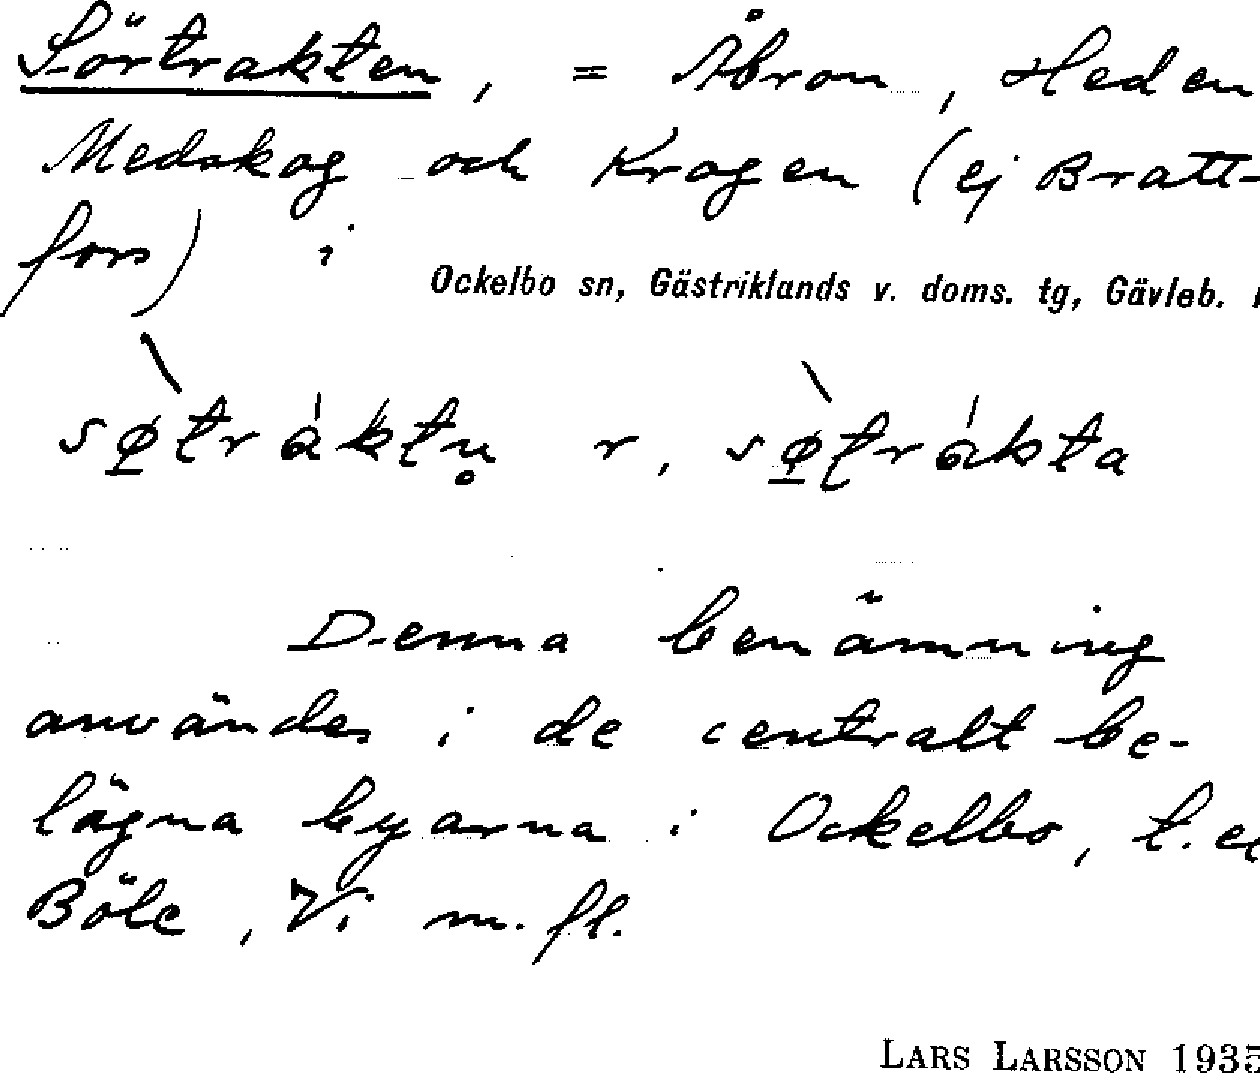 Sörtrakten, = Åbron, Heden
Medskog och Krogen (ej Bratt-
fors) i
Ockelbo sn, Gästriklands v. doms. tg, Gävleb.
sø̱̀tráktn̥ r, sø̱̀trákta
Denna benämning
användes i de centralt be-
lägna byarna i Ockelbo, t.ex
Böle, Vi m.fl.
LARS LARSSON 1935